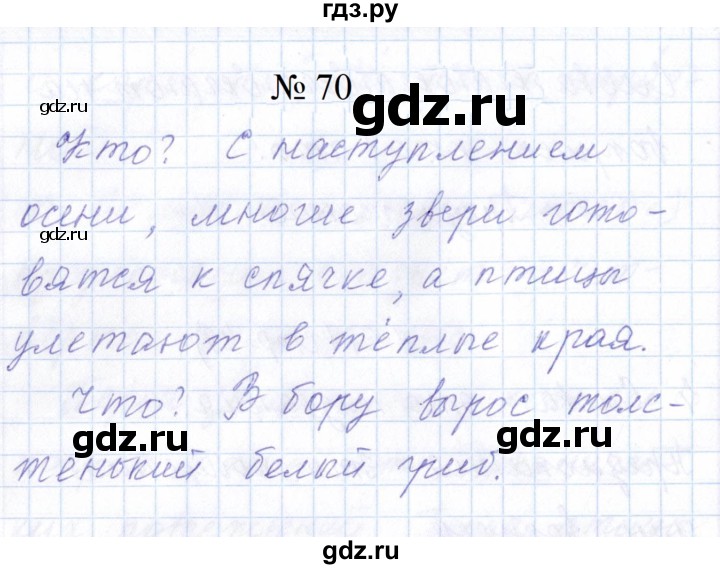 гдз.ру
№ 70
gdz.ru
gdz.ru
Кто? С наступлением
осени, многие звери гото-
gdz.ru
вятся к спячке, а птицы
улетают в тёплые края.
Что? В бору вырос толс-
gdz.ru
gdz.ru
тенький белый гриб.
gdz.ru